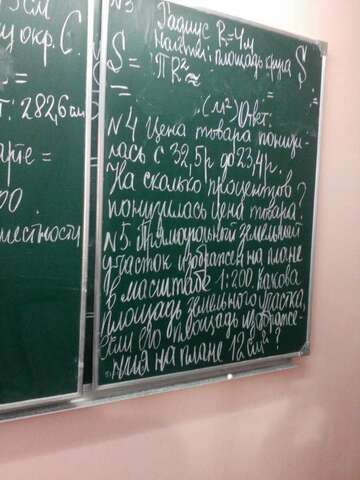 см
окр. C.
т: 282,6 см
арте =
00.
местности
N3
Радиус R=4м
Найти: площадь круга S.
S = πR² ≈
=
(м²) Ответ:
N4 Цена товара понизи-
лась с 32,5р до 23,4р.
На сколько процентов
понизилась цена товара?
N5. Прямоугольный земельный
участок изображен на плане
в масштабе 1:200. Какова
площадь земельного участка,
если его площадь изображе-
ния на плане 12 см²?